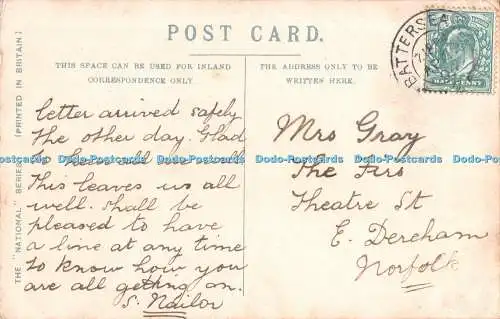 POST CARD.
THIS SPACE CAN BE USED FOR INLAND
CORRESPONDENCE ONLY.
THE ADDRESS ONLY TO BE
WRITTEN HERE.
BATTERSEA
HALFPENNY
THE "NATIONAL" SERIES
(PRINTED IN BRITAIN)
letter arrived safely
the other day. Glad
to hear all are well
This leaves us all
well. shall be
pleased to have
a line at any time
to know how you
are all getting on.
S. Nailor
Mrs Gray
The Firs
Theatre St
E. Dereham
Norfolk
Dodo-Postcards Dodo-Postcards Dodo-Postcards Dodo-Postcards Dodo-Postcards Dodo-Postcards